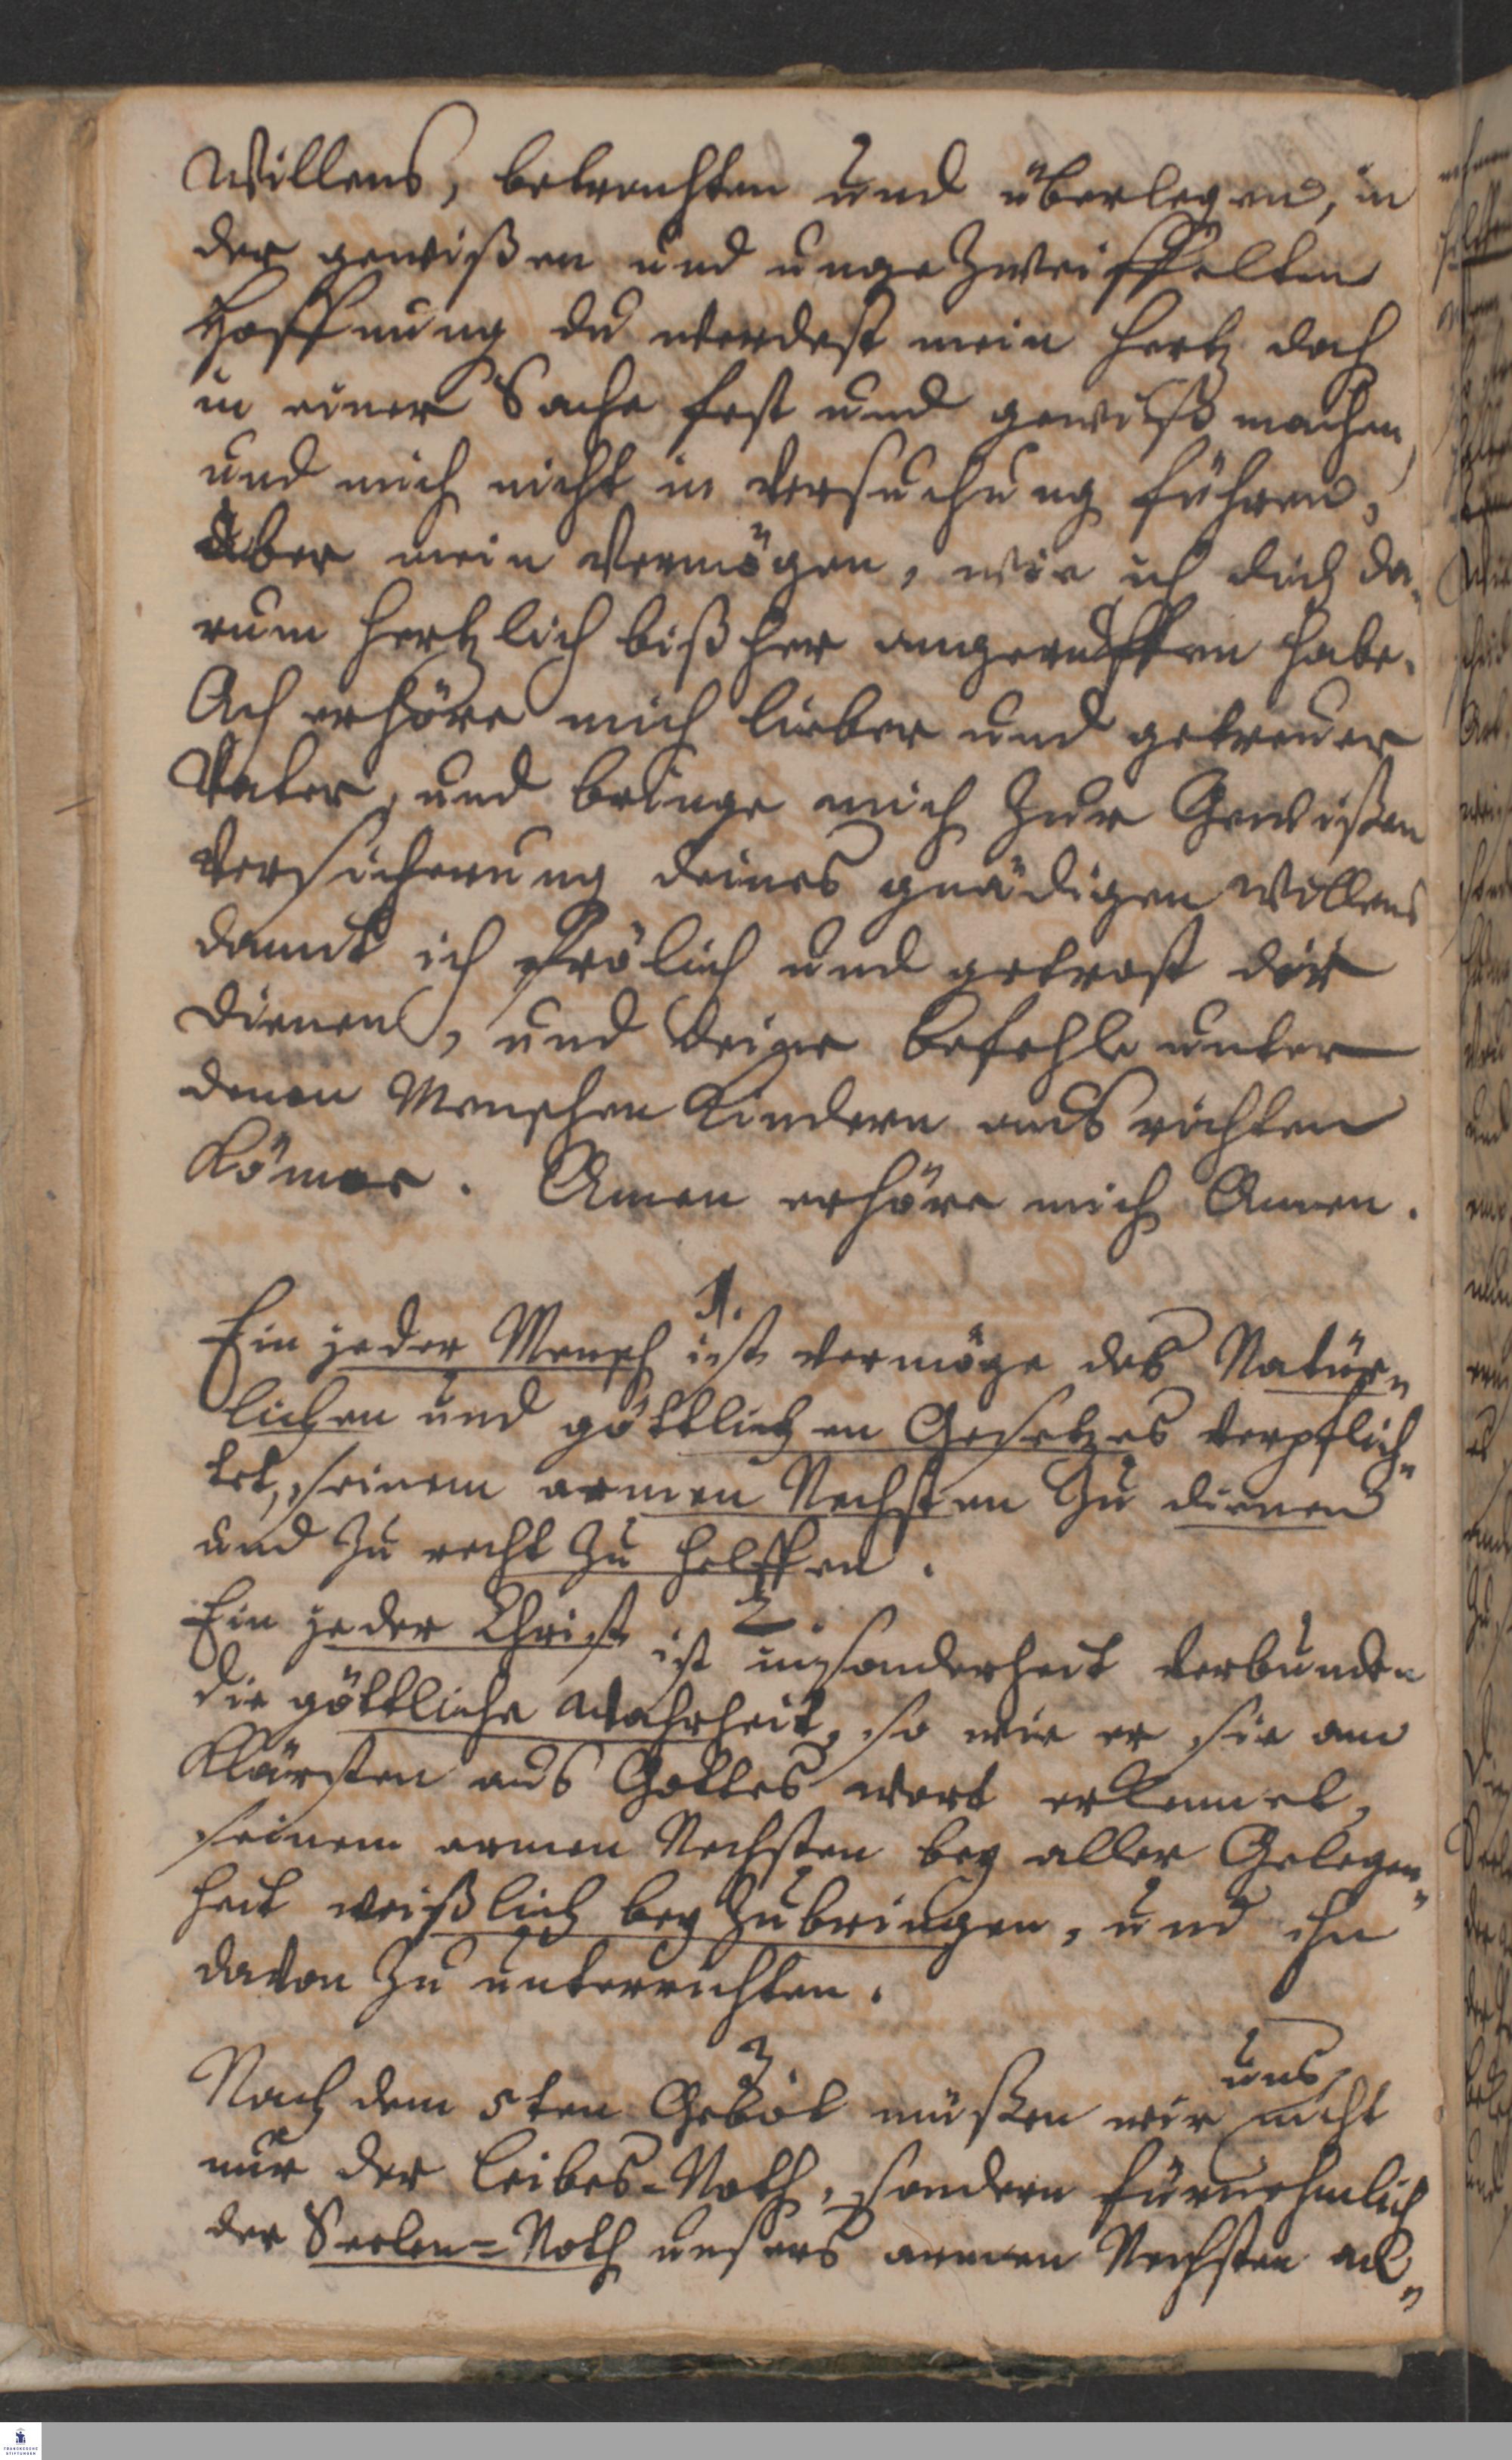 Willens, betrachten und überlegen, in
der gewißen und ungezweiffelten
Hoffnung du werdest mein Hertz doch
in einer Sache fest und gewiß machen,
und mich nicht in Versuchung führen,
über mein Vermögen, wie ich dich da¬
rum hertzlich bißher angeruffen habe.
Ach erhöre mich lieber und getreuer
Vater, und bringe mich zur Gewißen
Versicherung deines gnädigen Willens
damit ich frölich und getrost dir
dienen, und deine Befehle unter
denen Menschen Kindern ausrichten
Könne. Amen erhöre mich Amen.
1.
Ein jeder Mensch ist vermöge des Natür¬
lichen und göttlichen Gesetzes verpflich¬
tet, seinem armen Nechsten zu dienen
und zu recht zu helffen.
2.
Ein jeder Christ ist insonderheit verbunden
die göttliche Wahrheit, so wie er sie am
Klärsten aus Gottes wort erkennet,
seinem armen Nechsten bey aller Gelegen¬
heit weißlich bey zubringen, und ihn
davon zu unterrichten.
3.
Nach dem 5ten Gebot müßen wir uns nicht
nur der Leibes-Noth, sondern fürnehmlich
der Seelen-Noth unsers armen Nechsten an¬
FRANCKESCHE
STIFTUNGEN